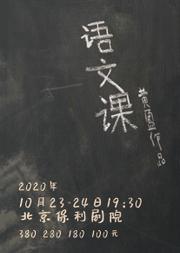 语文课
黄盈作品
2020年
10月23-24日19:30
北京保利剧院
380 280 180 100元